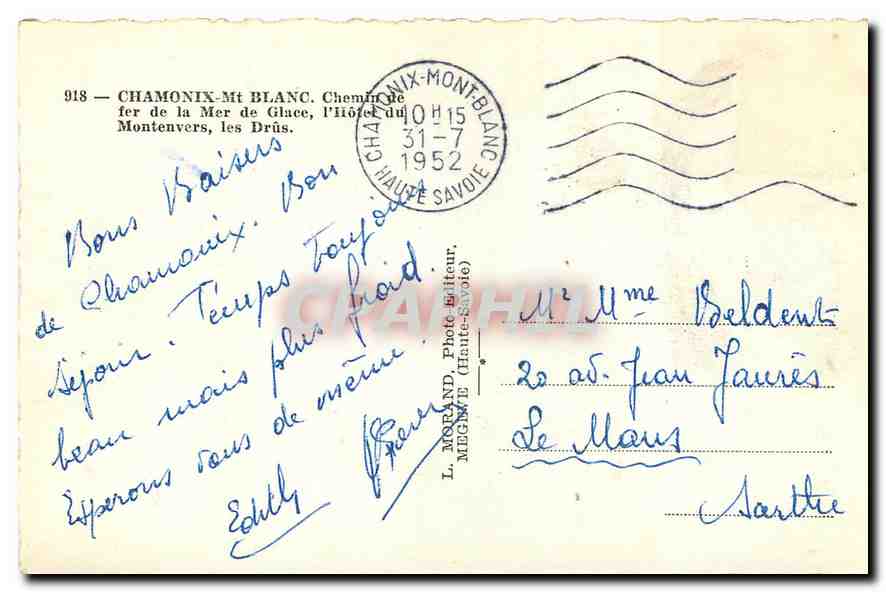 918 — CHAMONIX-Mt BLANC. Chemin de
fer de la Mer de Glace, l'Hôtel du
Montenvers, les Drûs.
CHAMONIX-MONT-BLANC
10H15
31-7
1952
HAUTE SAVOIE
Bons Baisers
de Chamonix. Bon
séjour. Temps toujours
beau mais plus froid.
Esperons vous de même.
Edith
L. MORAND, Photo-Editeur,
MEGEVE (Haute-Savoie)
CPAPHIL
Mr Mme Beldent
20 av. Jean Jaurès
Le Mans
Sarthe